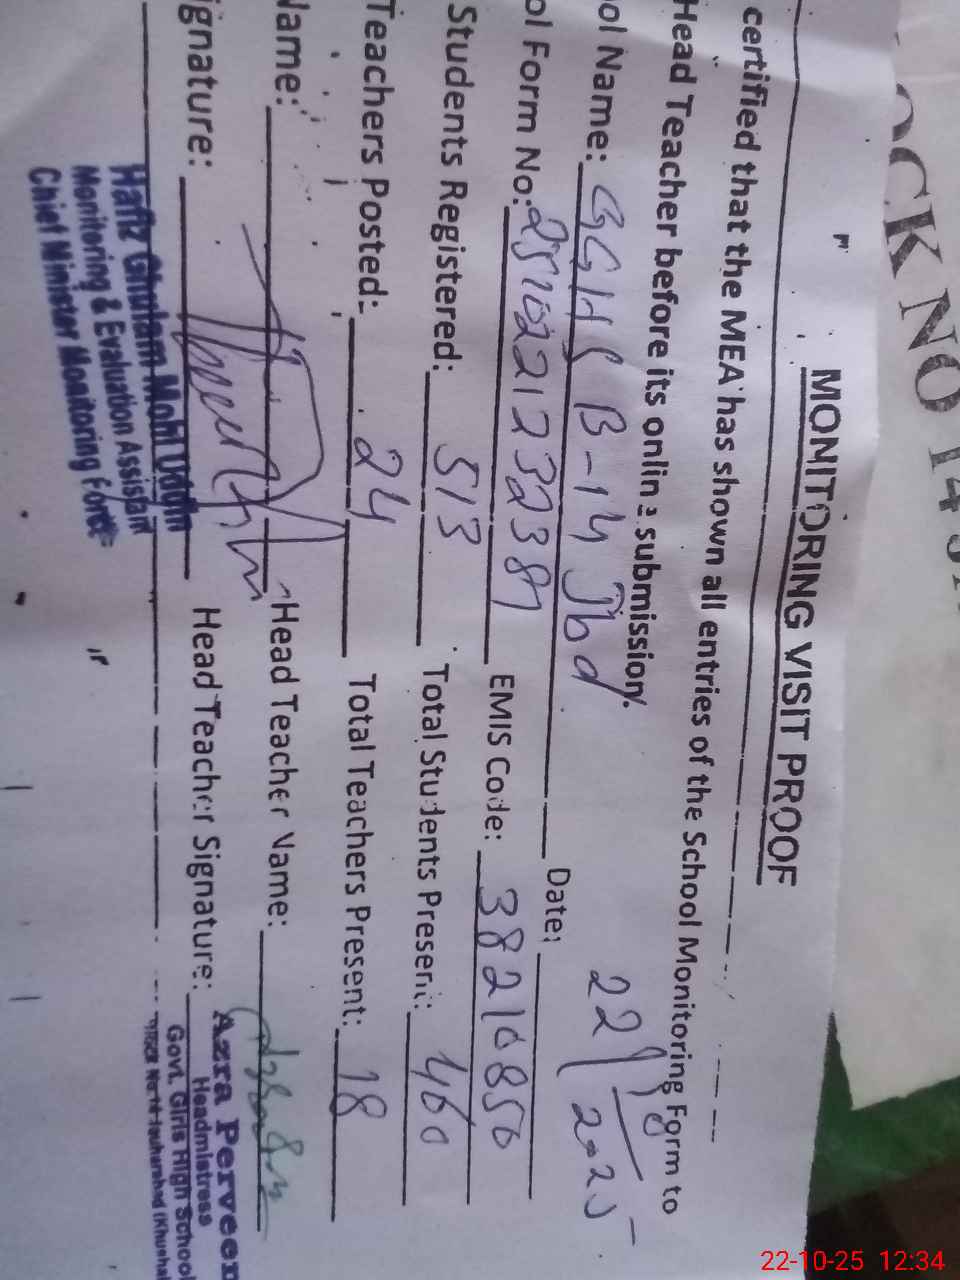 OCK NO 14
MONITORING VISIT PROOF
certified that the MEA has shown all entries of the School Monitoring Form to
Head Teacher before its online submission.
ol Name: GGHS B-14 Jbd Date: 22/10/2025
ol Form No: EMIS Code: 38210850
Students Registered: 513 Total Students Present: 460
Teachers Posted: 24 Total Teachers Present: 18
Name: Head Teacher Name:
ignature: Head Teacher Signature:
Hafiz Ghulam Mohi Uddin
Monitoring & Evaluation Assistant
Chief Minister Monitoring Force
Azra Perveen
Headmistress
Govt. Girls High School
22-10-25 12:34